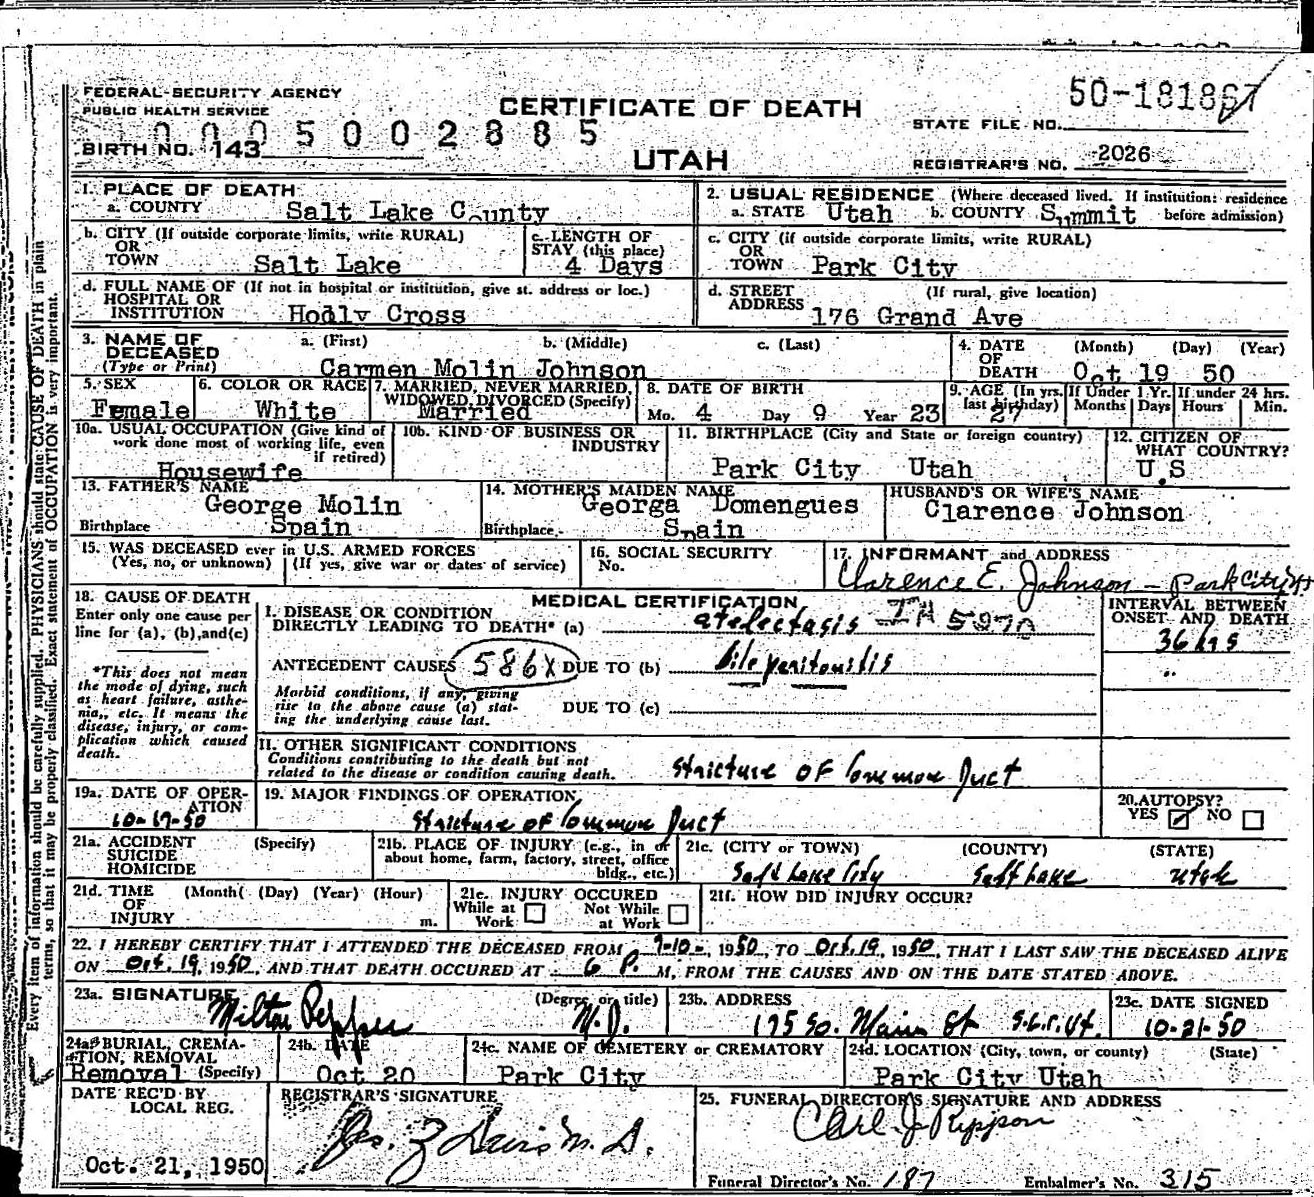 FEDERAL SECURITY AGENCY
PUBLIC HEALTH SERVICE
CERTIFICATE OF DEATH
UTAH
50-181867
STATE FILE NO.
0005002885
BIRTH NO. 143
REGISTRAR'S NO. 2026
1. PLACE OF DEATH
a. COUNTY Salt Lake County
2. USUAL RESIDENCE (Where deceased lived. If institution: residence before admission)
a. STATE Utah b. COUNTY Summit
b. CITY (If outside corporate limits, write RURAL) OR TOWN Salt Lake
c. LENGTH OF STAY (this place) 4 Days
c. CITY (if outside corporate limits, write RURAL) OR TOWN Park City
d. FULL NAME OF (If not in hospital or institution, give st. address or loc.) HOSPITAL OR INSTITUTION Hodly Cross
d. STREET ADDRESS (If rural, give location) 176 Grand Ave
3. NAME OF DECEASED (Type or Print) a. (First) b. (Middle) c. (Last)
Carmen Molin Johnson
4. DATE OF DEATH (Month) (Day) (Year) Oct 19 50
5. SEX Female
6. COLOR OR RACE White
7. MARRIED, NEVER MARRIED, WIDOWED, DIVORCED (Specify) Married
8. DATE OF BIRTH Mo. 4 Day 9 Year 23
9. AGE (In yrs. last birthday) 27 If Under 1 Yr. Months Days If under 24 hrs. Hours Min.
10a. USUAL OCCUPATION (Give kind of work done most of working life, even if retired) Housewife
10b. KIND OF BUSINESS OR INDUSTRY
11. BIRTHPLACE (City and State or foreign country) Park City Utah
12. CITIZEN OF WHAT COUNTRY? U.S
13. FATHER'S NAME George Molin
Birthplace Spain
14. MOTHER'S MAIDEN NAME Georga Domengues
Birthplace Spain
HUSBAND'S OR WIFE'S NAME Clarence Johnson
15. WAS DECEASED ever in U.S. ARMED FORCES (Yes, no, or unknown) (If yes, give war or dates of service)
16. SOCIAL SECURITY No.
17. INFORMANT and ADDRESS
Clarence E. Johnson - Park City, Ut
18. CAUSE OF DEATH
Enter only one cause per line for (a), (b), and (c)
*This does not mean the mode of dying, such as heart failure, asthenia, etc. It means the disease, injury, or complication which caused death.
MEDICAL CERTIFICATION
INTERVAL BETWEEN ONSET AND DEATH
I. DISEASE OR CONDITION DIRECTLY LEADING TO DEATH* (a) atelectasis
36 hrs
ANTECEDENT CAUSES 586X DUE TO (b) bile peritonitis
"
Morbid conditions, if any, giving rise to the above cause (a) stating the underlying cause last. DUE TO (c)
II. OTHER SIGNIFICANT CONDITIONS
Conditions contributing to the death but not related to the disease or condition causing death. Stricture of Common Duct
19a. DATE OF OPERATION 10-17-50
19. MAJOR FINDINGS OF OPERATION
Stricture of Common Duct
20. AUTOPSY? YES NO
21a. ACCIDENT SUICIDE HOMICIDE (Specify)
21b. PLACE OF INJURY (e.g., in or about home, farm, factory, street, office bldg., etc.)
21c. (CITY or TOWN) (COUNTY) (STATE)
Salt Lake City Salt Lake Utah
21d. TIME OF INJURY (Month) (Day) (Year) (Hour) m.
21e. INJURY OCCURED While at Work Not While at Work
21f. HOW DID INJURY OCCUR?
22. I HEREBY CERTIFY THAT I ATTENDED THE DECEASED FROM 9-10-, 1950, TO Oct. 19, 1950, THAT I LAST SAW THE DECEASED ALIVE
ON Oct. 19, 1950, AND THAT DEATH OCCURED AT 6 P. M, FROM THE CAUSES AND ON THE DATE STATED ABOVE.
23a. SIGNATURE (Degree or title)
Milton Pepper M.D.
23b. ADDRESS
175 So. Main St S.L.C. Ut.
23c. DATE SIGNED
10-21-50
24a. BURIAL, CREMATION, REMOVAL (Specify) Removal
24b. DATE Oct 20
24c. NAME OF CEMETERY or CREMATORY Park City
24d. LOCATION (City, town, or county) (State) Park City Utah
DATE REC'D BY LOCAL REG.
Oct. 21, 1950
REGISTRAR'S SIGNATURE
25. FUNERAL DIRECTOR'S SIGNATURE AND ADDRESS
Carl J Rippon
Funeral Director's No. 187 Embalmer's No. 315
Every item of information should be carefully supplied. PHYSICIANS should state CAUSE OF DEATH in plain
terms, so that it may be properly classified. Exact statement of OCCUPATION is very important.